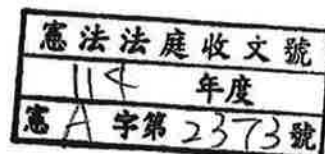 憲法法庭收文號
114 年度
憲 A 字第 2373 號